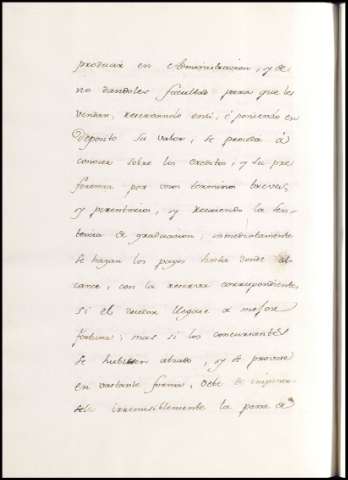 producir en Administracion, y de
no dandoles facultad para que les
vendan, reservando en si, ó poniendo en
deposito su valor, se proceda á
conocer sobre los creditos, y su pre
ferencia por unos terminos breves,
y perentorios, y recaiendo la Sen-
tencia de graduacion, inmediatamente
se hagan los pagos hasta donde al-
cance, con la reserva correspondiente
si el deudor llegase á mejor
fortuna; mas si los concursantes
se hubiesen alzado, y se provare
en bastante forma, debe de imponer
sele irremisiblemente la pena de